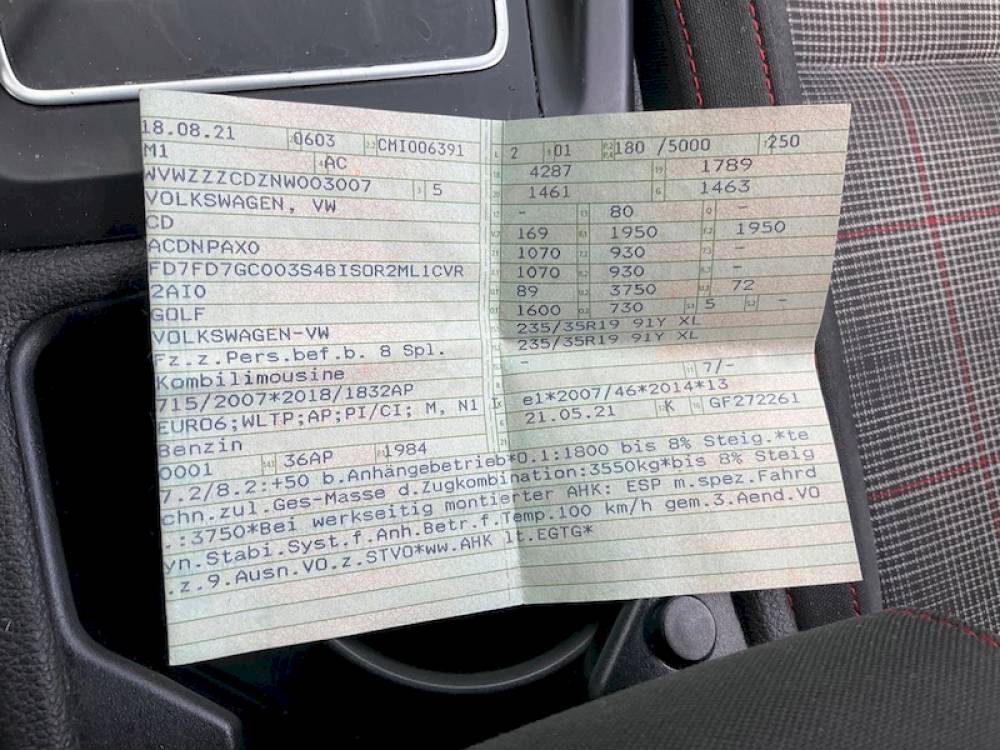 18.08.21 0603 CMI006391
M1 AC
WVWZZZCDZNW003007 5
VOLKSWAGEN, VW
CD
ACDNPAX0
FD7FD7GC003S4BISOR2ML1CVR
2AI0
GOLF
VOLKSWAGEN-VW
Fz.z.Pers.bef.b. 8 Spl.
Kombilimousine
715/2007*2018/1832AP
EURO6;WLTP;AP;PI/CI; M, N1
Benzin
0001 36AP 1984
2 01 180 /5000 250
4287 1789
1461 1463
- 80 -
169 1950 1950
1070 930 -
1070 930 -
89 3750 72
1600 730 5 -
235/35R19 91Y XL
235/35R19 91Y XL
- 7/-
e1*2007/46*2014*13
21.05.21 K GF272261
7.2/8.2:+50 b.Anhängebetrieb*O.1:1800 bis 8% Steig.*te
chn.zul.Ges-Masse d.Zugkombination:3550kg*bis 8% Steig
.:3750*Bei werkseitig montierter AHK: ESP m.spez.Fahrd
yn.Stabi.Syst.f.Anh.Betr.f.Temp.100 km/h gem.3.Aend.VO
.z.9.Ausn.VO.z.STVO*ww.AHK lt.EGTG*